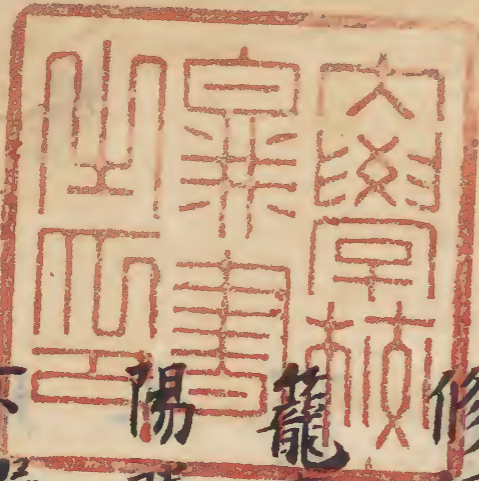 大學校
書
之印
修
籠
陽